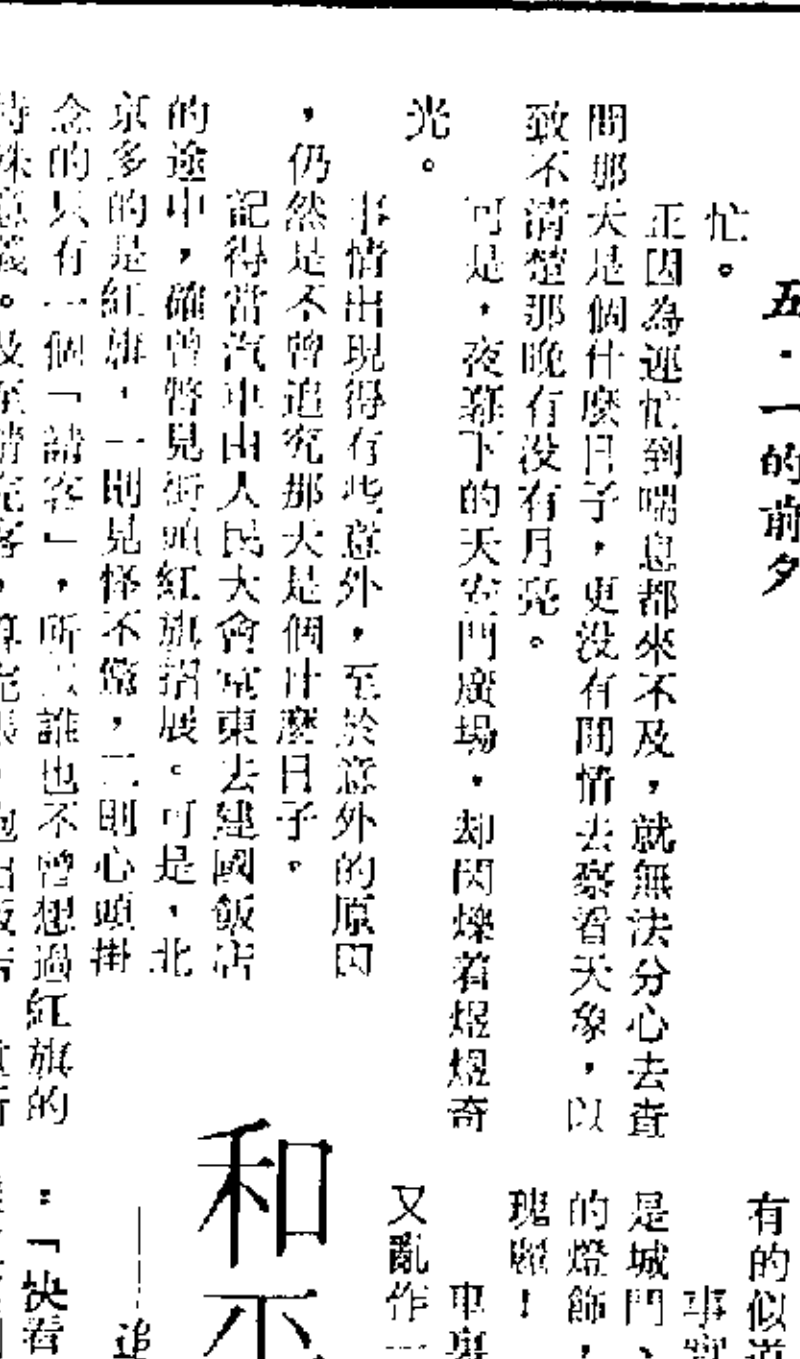 五·一的前夕
忙。
正因為連忙到喘息都來不及，就無法分心去查
問那天是個什麼日子，更没有閒情去察看天象，以
致不清楚那晚有没有月亮。
可是，夜幕下的天安門廣場，却閃爍着煜煜奇
光。
事情出現得有些意外，至於意外的原因
，仍然是不曾追究那天是個什麼日子。
記得當汽車由人民大會堂東去建國飯店
的途中，確曾瞥見街頭紅旗招展。可是，北
京多的是紅旗，一則見怪不怪，二則心頭掛
念的只有一個「請客」，所以誰也不曾想過紅旗的
特殊意義。及至請完客，算完賬，
有的似道
事實
是城門、
的燈飾，
瑰麗！
車裏
又亂作一
和平
——追
：「快看